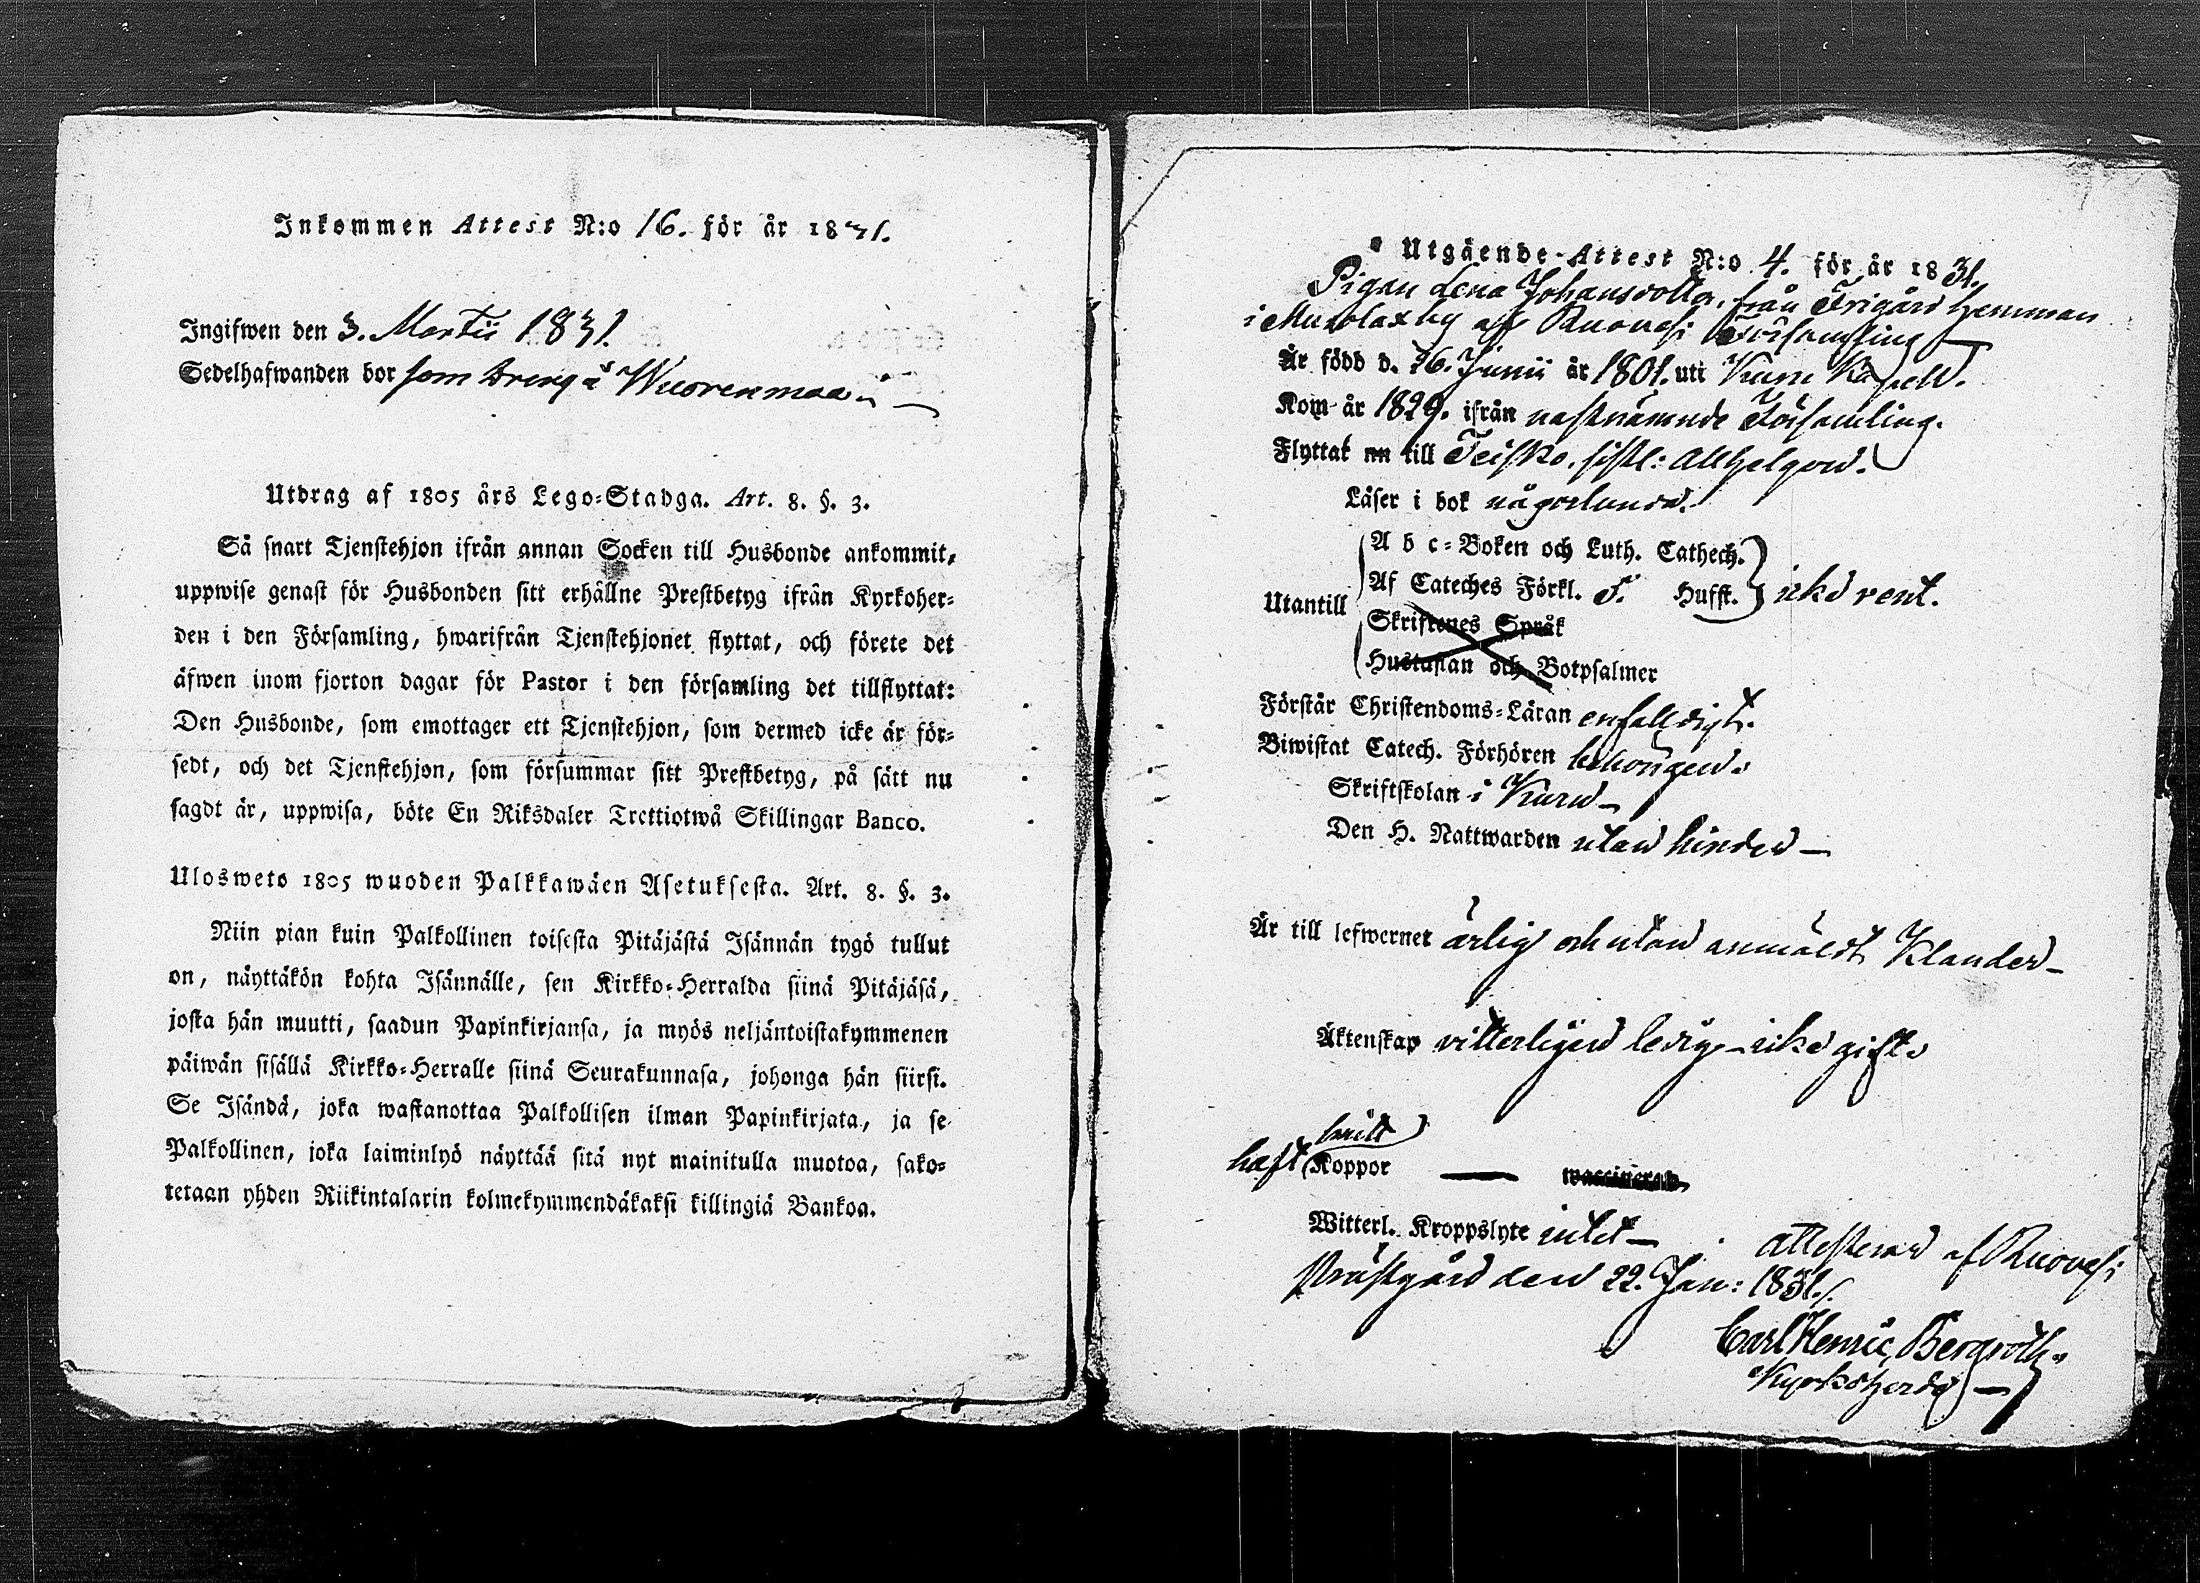 Inkommen Attest N:o 16. för år 1831.
Ingifwen den 3. Martii 1831.
Sedelhafwanden bor som Dreng å Wuorenmaa
Utdrag af 1805 års Lego-Stadga. Art. 8. §. 3.
Så snart Tjenstehjon ifrån annan Socken till Husbonde ankommit,
uppwise genast för Husbonden sitt erhållne Prestbetyg ifrån Kyrkoher-
den i den Församling, hwarifrån Tjenstehjonet flyttat, och förete det
äfwen inom fjorton dagar för Pastor i den församling det tillflyttat:
Den Husbonde, som emottager ett Tjenstehjon, som dermed icke är för-
sedt, och det Tjenstehjon, som försummar sitt Prestbetyg, på sätt nu
sagdt är, uppwisa, böte En Riksdaler Trettiotwå Skillingar Banco.
Ulosweto 1805 wuoden Palkkawäen Asetuksesta. Art. 8. §. 3.
Niin pian kuin Palkollinen toisesta Pitäjästä Isännän tygö tullut
on, näyttäkön kohta Isännälle, sen Kirkko-Herralda siinä Pitäjäsä,
josta hän muutti, saadun Papinkirjansa, ja myös neljäntoistakymmenen
päiwän sisällä Kirkko-Herralle siinä Seurakunnasa, johonga hän siirsi.
Se Isändä, joka wastanottaa Palkollisen ilman Papinkirjata, ja se
Palkollinen, joka laiminlyö näyttää sitä nyt mainitulla muotoa, sako-
tetaan yhden Riikintalarin kolmekymmendäkaksi killingiä Bankoa.
Utgående-Attest N:o 4. för år 1831.
Pigan Lena Johansdotter, från Frigård Hemman
i Murolax by af Ruovesi Församling
Är född d. 26. Junii år 1801. uti Kuru Kapell.
Kom år 1829. ifrån nästnämnde Församling.
Flyttat nu till Teisko, sistl: Allhelgon.
Läser i bok någorlunda.
Utantill
A b c-Boken och Luth. Cathech.
Af Cateches Förkl. 5. Hufst. icke rent.
Skriftenes Språk
Hustaflan och Botpsalmer
Förstår Christendoms-Läran enfaldigt.
Biwistat Catech. Förhören behörigen.
Skriftskolan i Kuru
Den H. Nattwarden utan hinder
Är till lefwernet ärlig och utan anmäldt Klander
Äktenskap vitterligen ledig icke gift.
haft Koppor — waccinerad
Witterl. Kroppslyte intet — Attesterar af Ruovesi
Prästgård den 22. Jan: 1831.
Carl Henric Bergroth.
Kyrkoherde